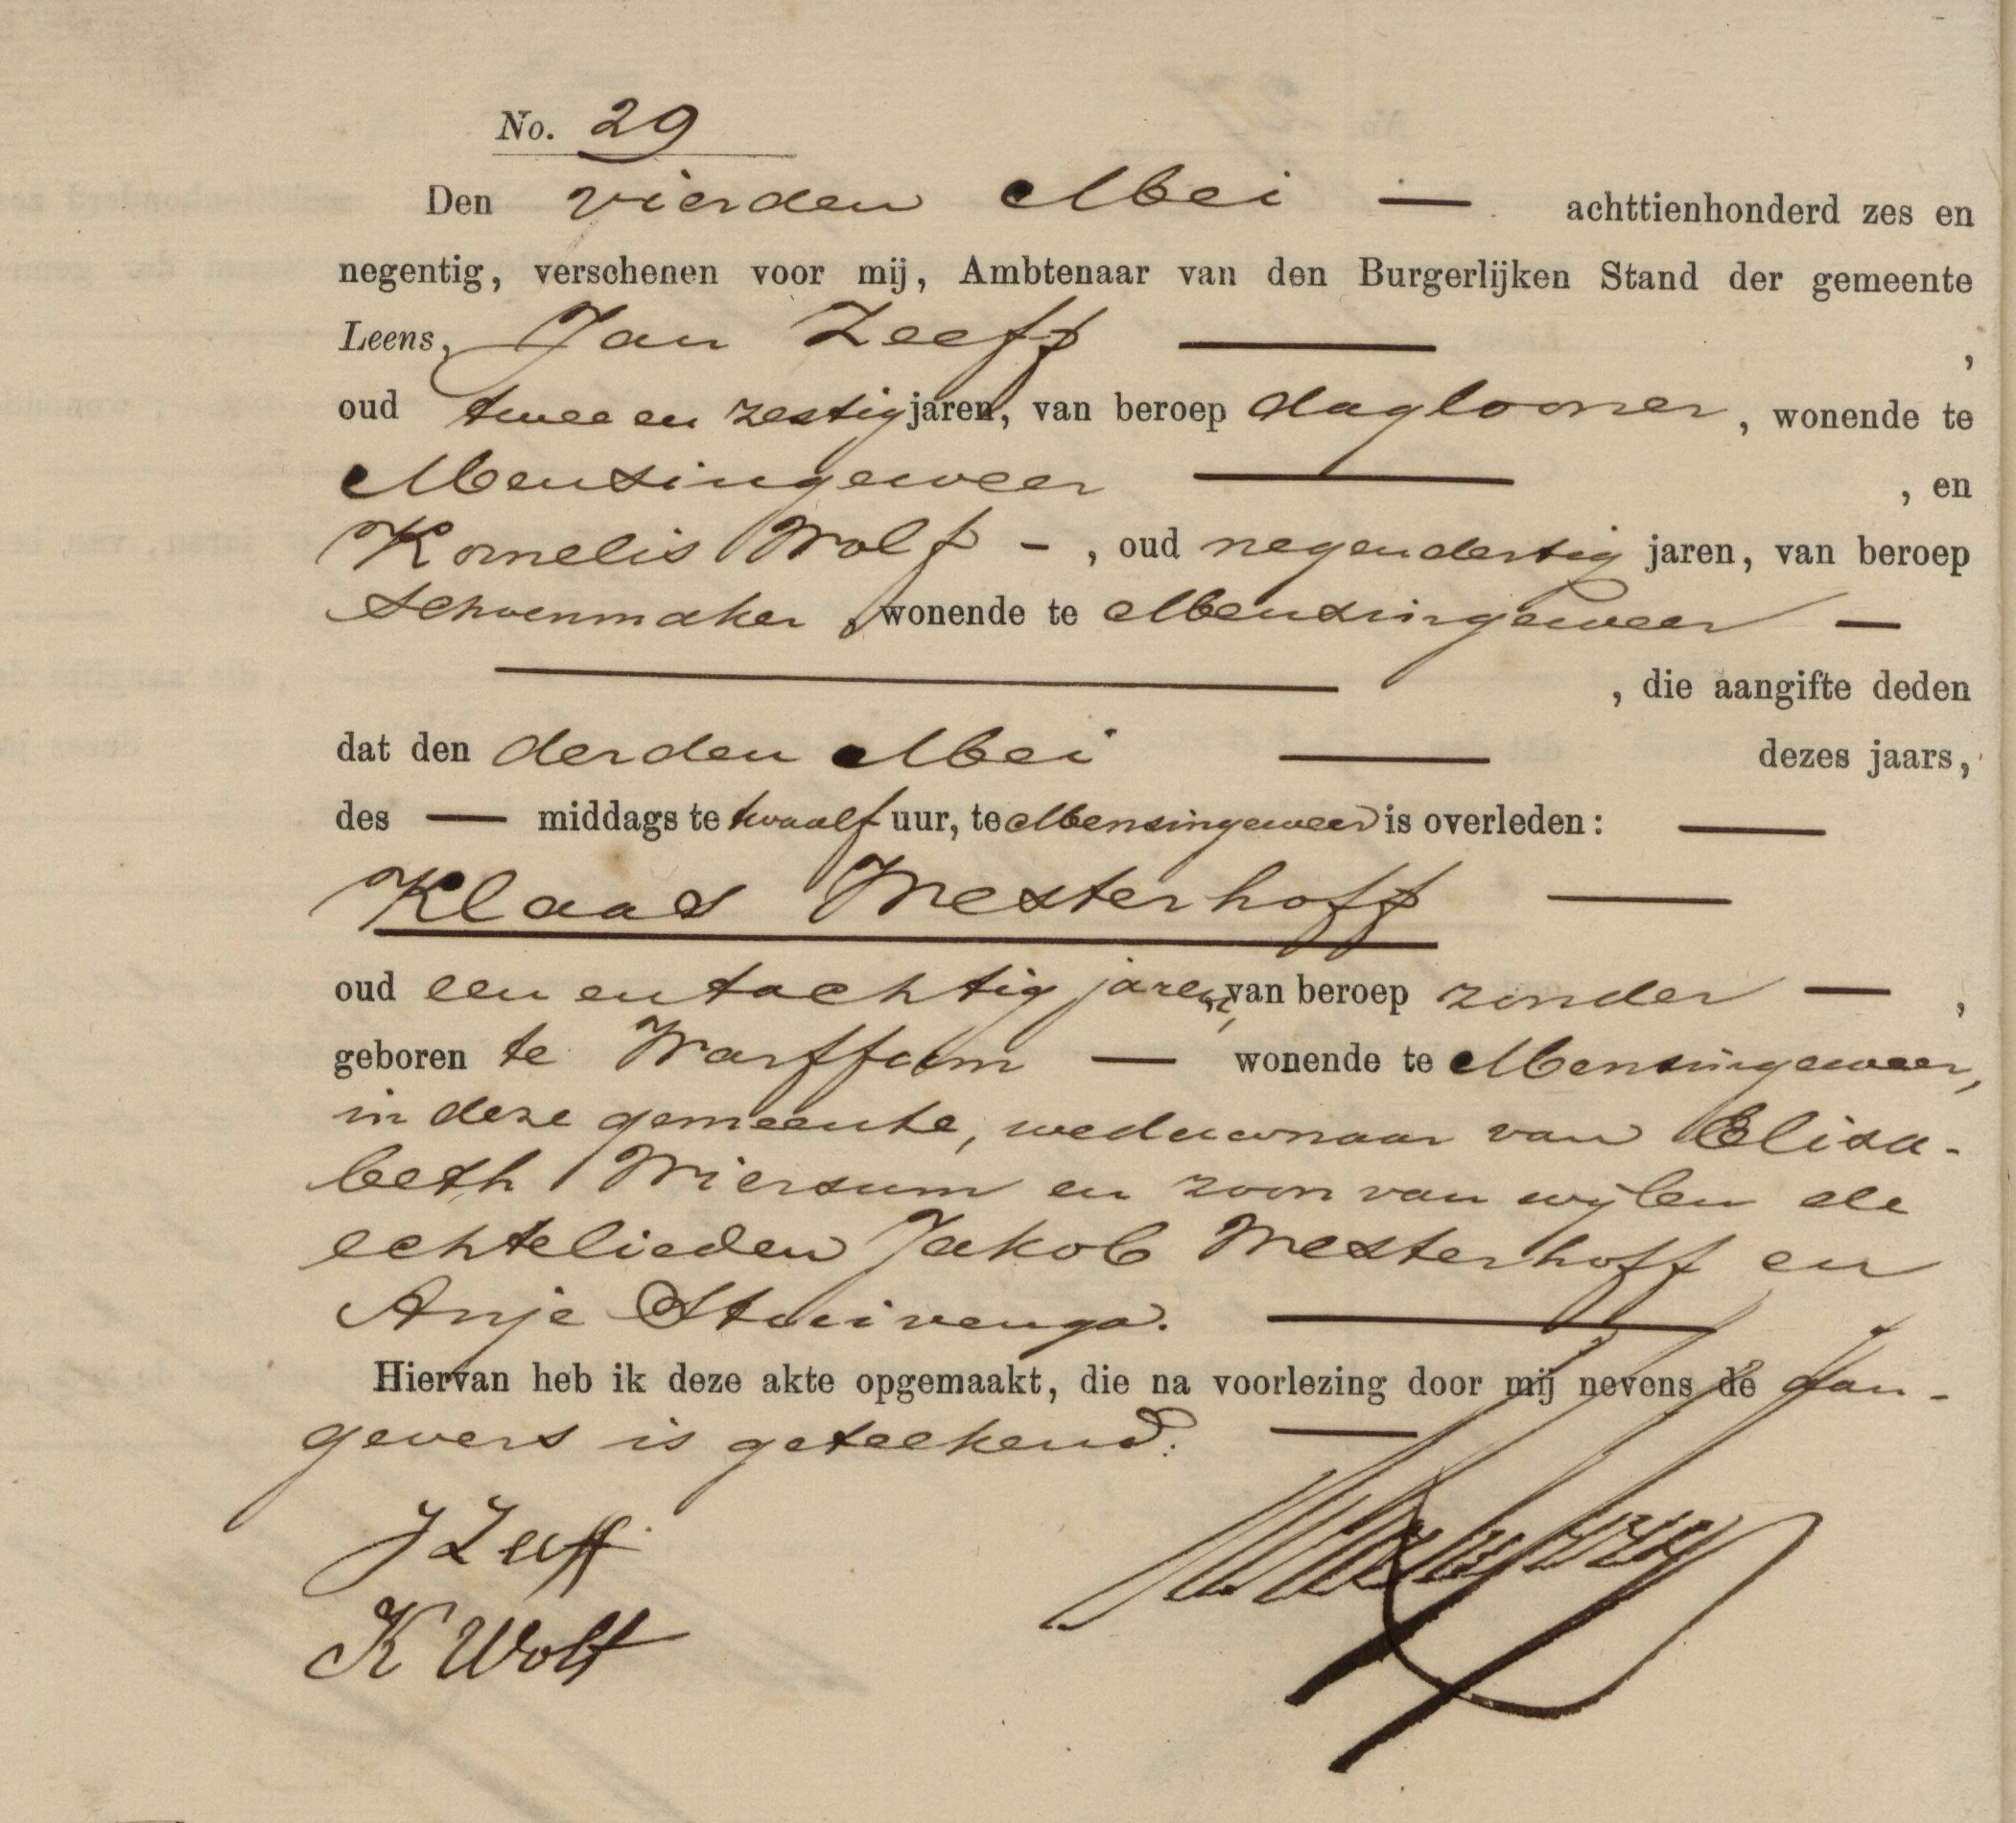 No. 29
Den vierden Mei — achttienhonderd zes en
negentig, verschenen voor mij, Ambtenaar van den Burgerlijken Stand der gemeente
Leens, Jan Zeeff — ,
oud twee en zestig jaren, van beroep daglooner, wonende te
Mensingeweer — , en
Kornelis Wolf - , oud negendertig jaren, van beroep
Schoenmaker, wonende te Mensingeweer —
— , die aangifte deden
dat den derden Mei — dezes jaars,
des — middags te twaalf uur, te Mensingeweer is overleden: —
Klaas Westerhoff —
oud een en tachtig jaren, van beroep zonder — ,
geboren te Warffum — wonende te Mensingeweer,
in deze gemeente, weduwnaar van Elisa-
beth Wiersum en zoon van wijlen de
echtelieden Jakob Westerhoff en
Anje Stuivenga. —
Hiervan heb ik deze akte opgemaakt, die na voorlezing door mij nevens de aan-
gevers is geteekend. —
J Zeeff
K Wolf